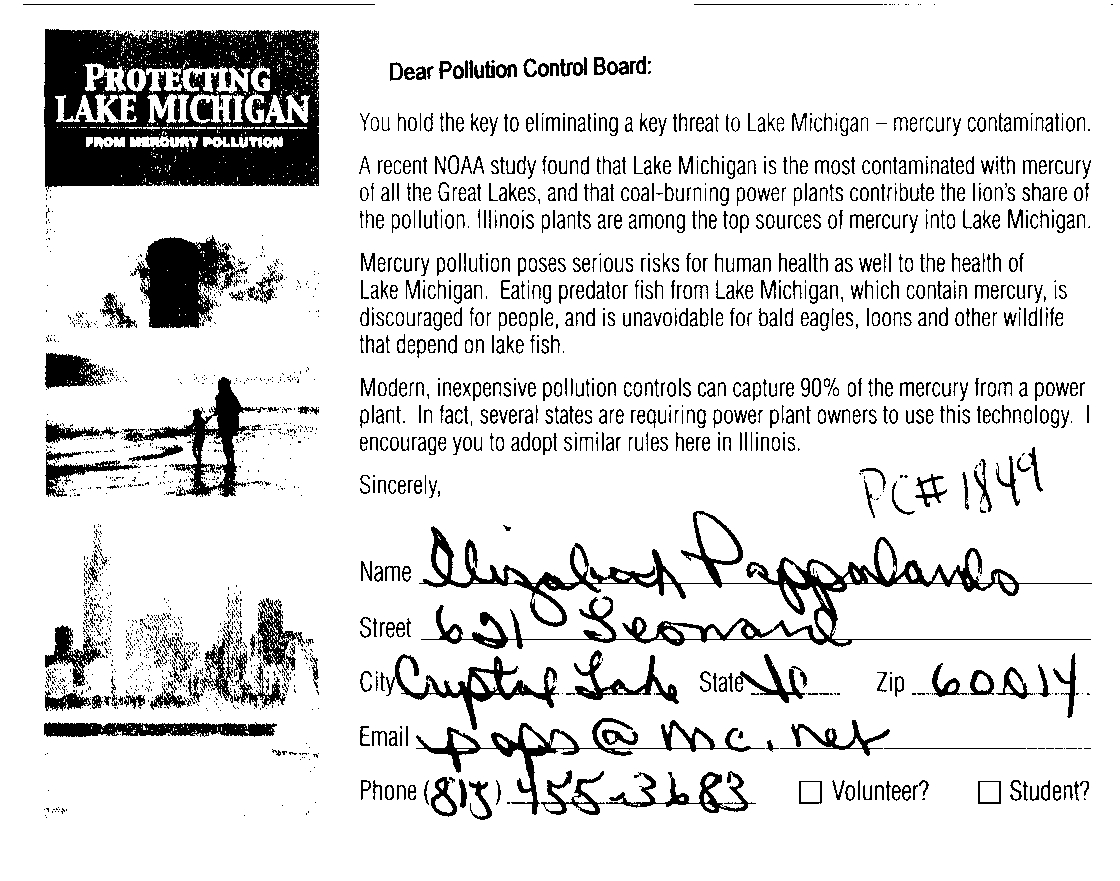 PROTECTING
LAKE MICHIGAN
FROM MERCURY POLLUTION
Dear Pollution Control Board:
You hold the key to eliminating a key threat to Lake Michigan – mercury contamination.
A recent NOAA study found that Lake Michigan is the most contaminated with mercury
of all the Great Lakes, and that coal-burning power plants contribute the lion's share of
the pollution. Illinois plants are among the top sources of mercury into Lake Michigan.
Mercury pollution poses serious risks for human health as well to the health of
Lake Michigan. Eating predator fish from Lake Michigan, which contain mercury, is
discouraged for people, and is unavoidable for bald eagles, loons and other wildlife
that depend on lake fish.
Modern, inexpensive pollution controls can capture 90% of the mercury from a power
plant. In fact, several states are requiring power plant owners to use this technology. I
encourage you to adopt similar rules here in Illinois.
Sincerely,
PC#1849
Name Elizabeth
Street 621 Leonard
City Crystal Lake State Zip 60014
Email paps@mc.net
Phone (815) 455-3683 Volunteer? Student?